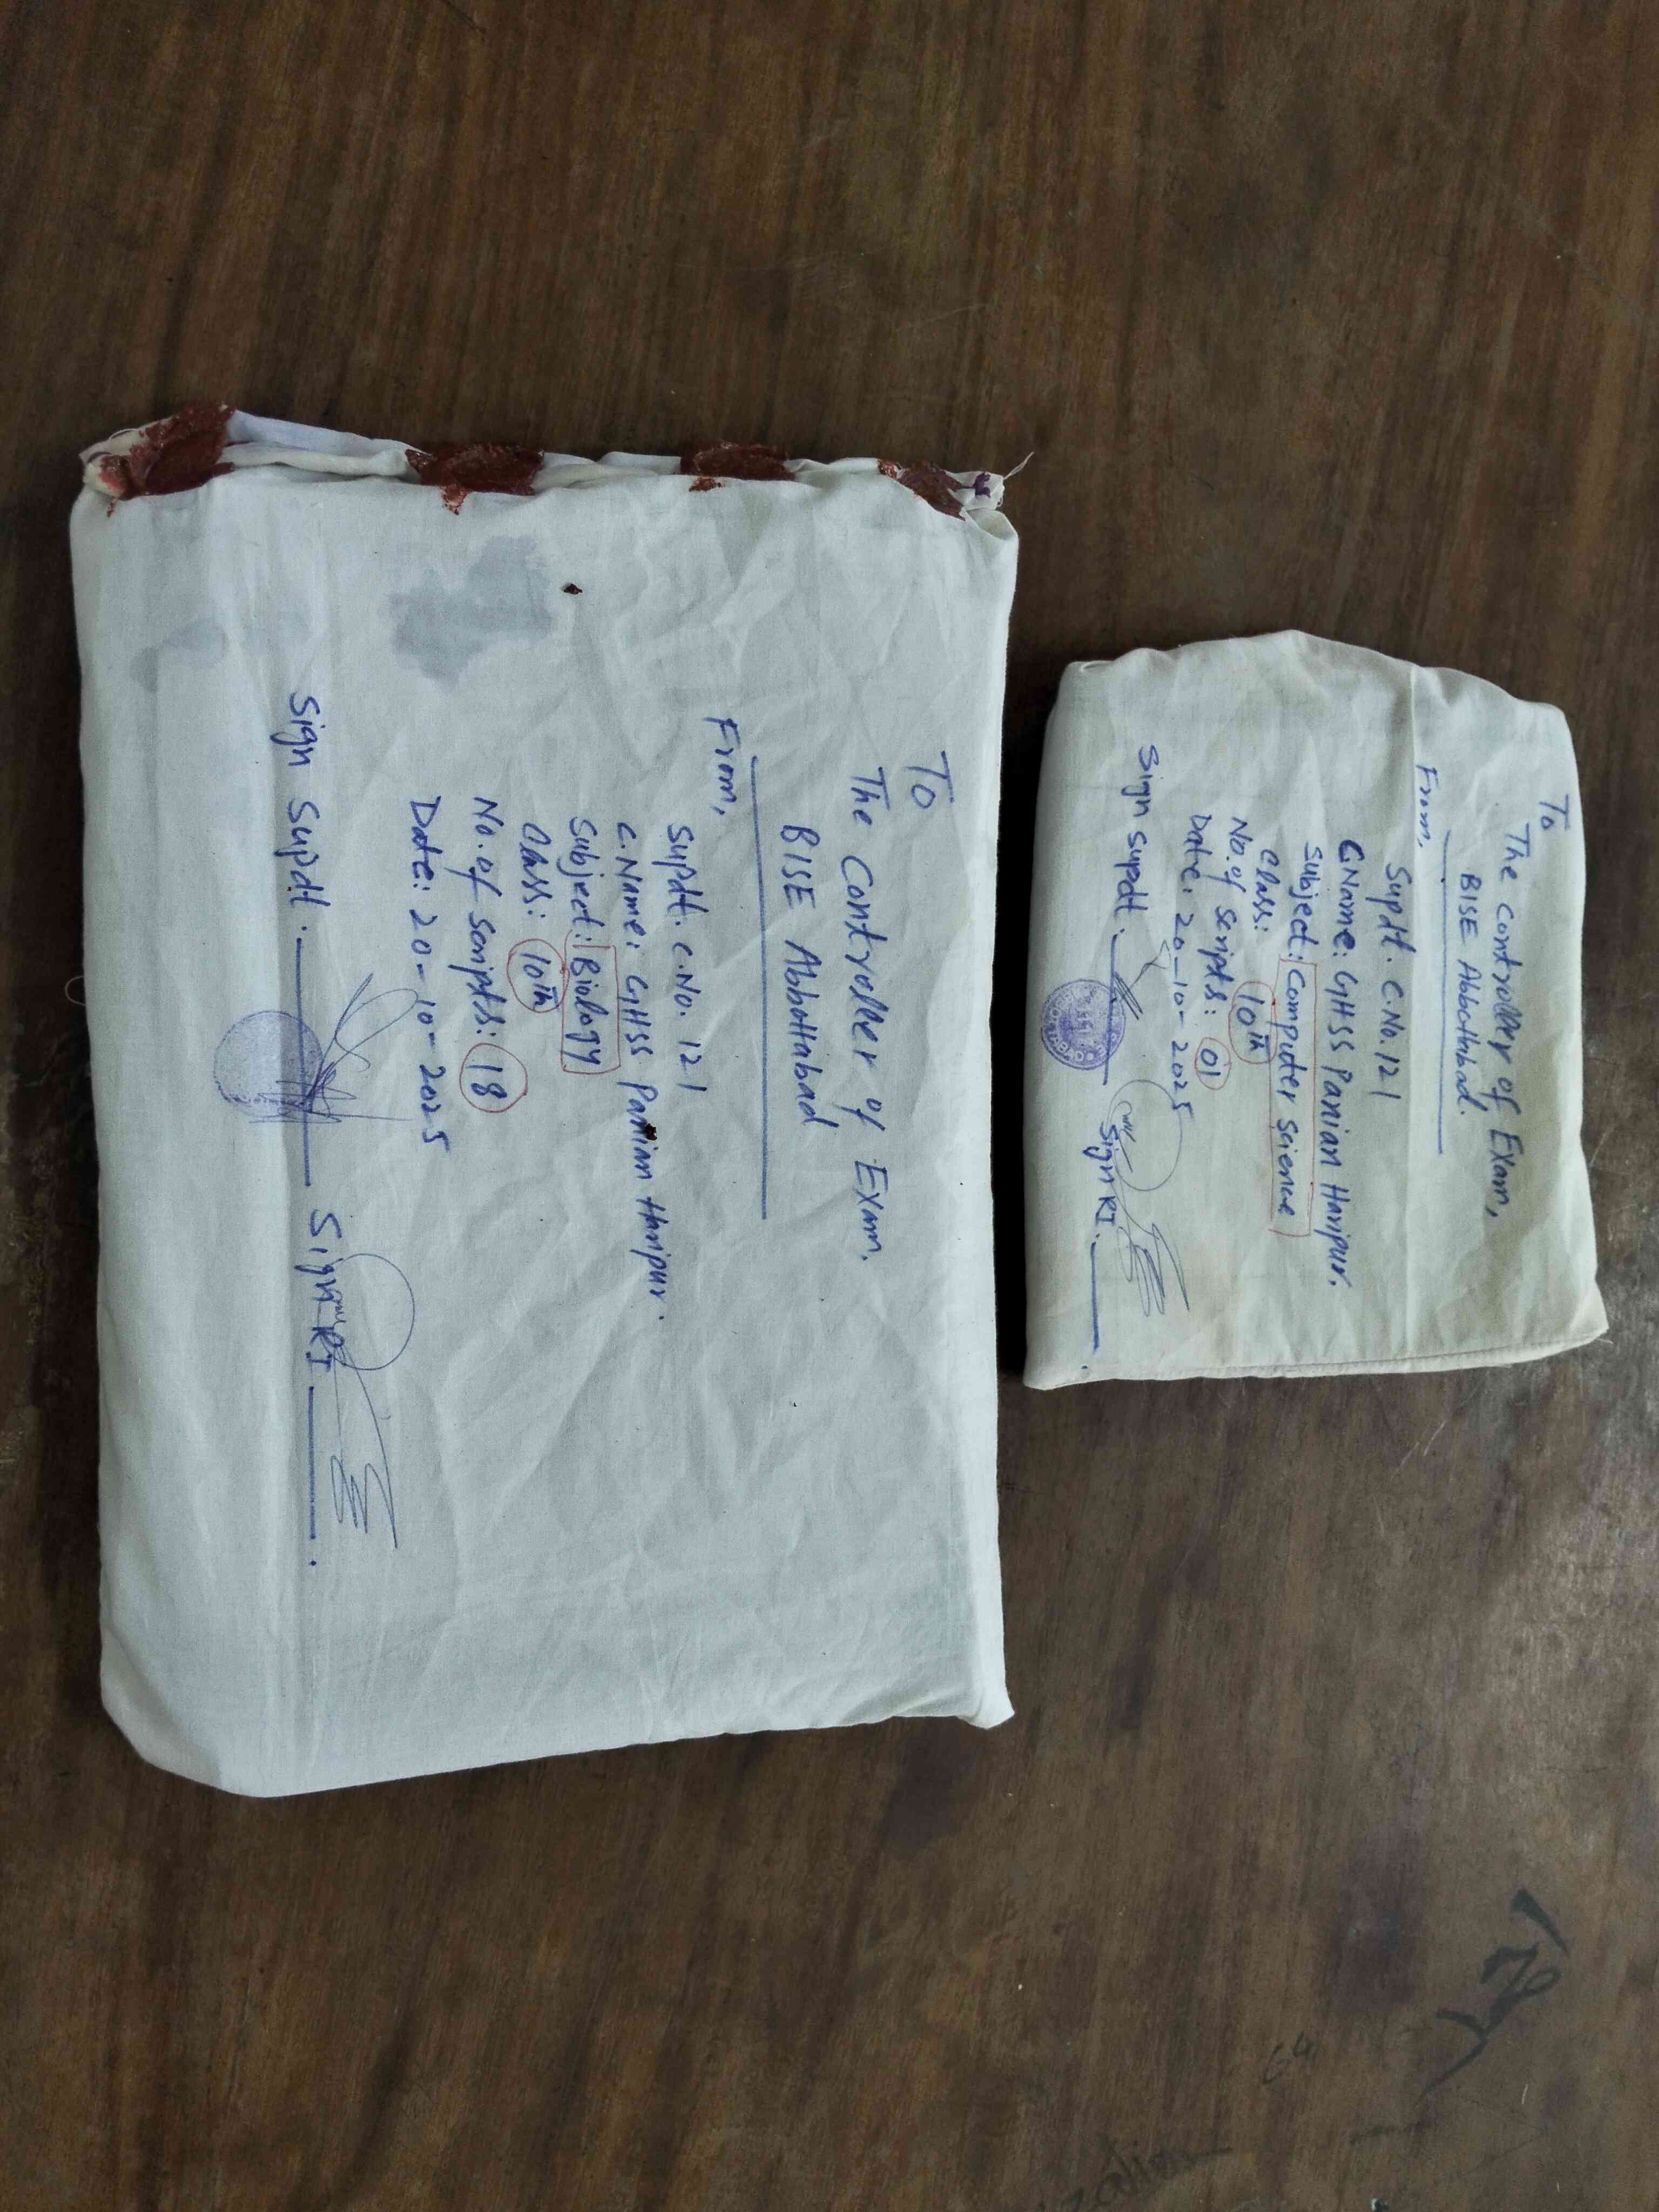 To
The Controller of Exam,
BISE Abbottabad.
From,
Supdt. C.No. 121
C.Name: GHSS Panian Haripur.
Subject: Computer Science
Class: 10th
No. of Scripts: 01
Date: 20-10-2025
Sign Supdt. Sign RI
To
The Controller of Exam.
BISE Abbottabad
From,
Supdt. C.No. 121
C.Name: GHSS Panian Haripur.
Subject: Biology
Class: 10th
No. of Scripts: 18
Date: 20-10-2025
Sign Supdt. Sign RI